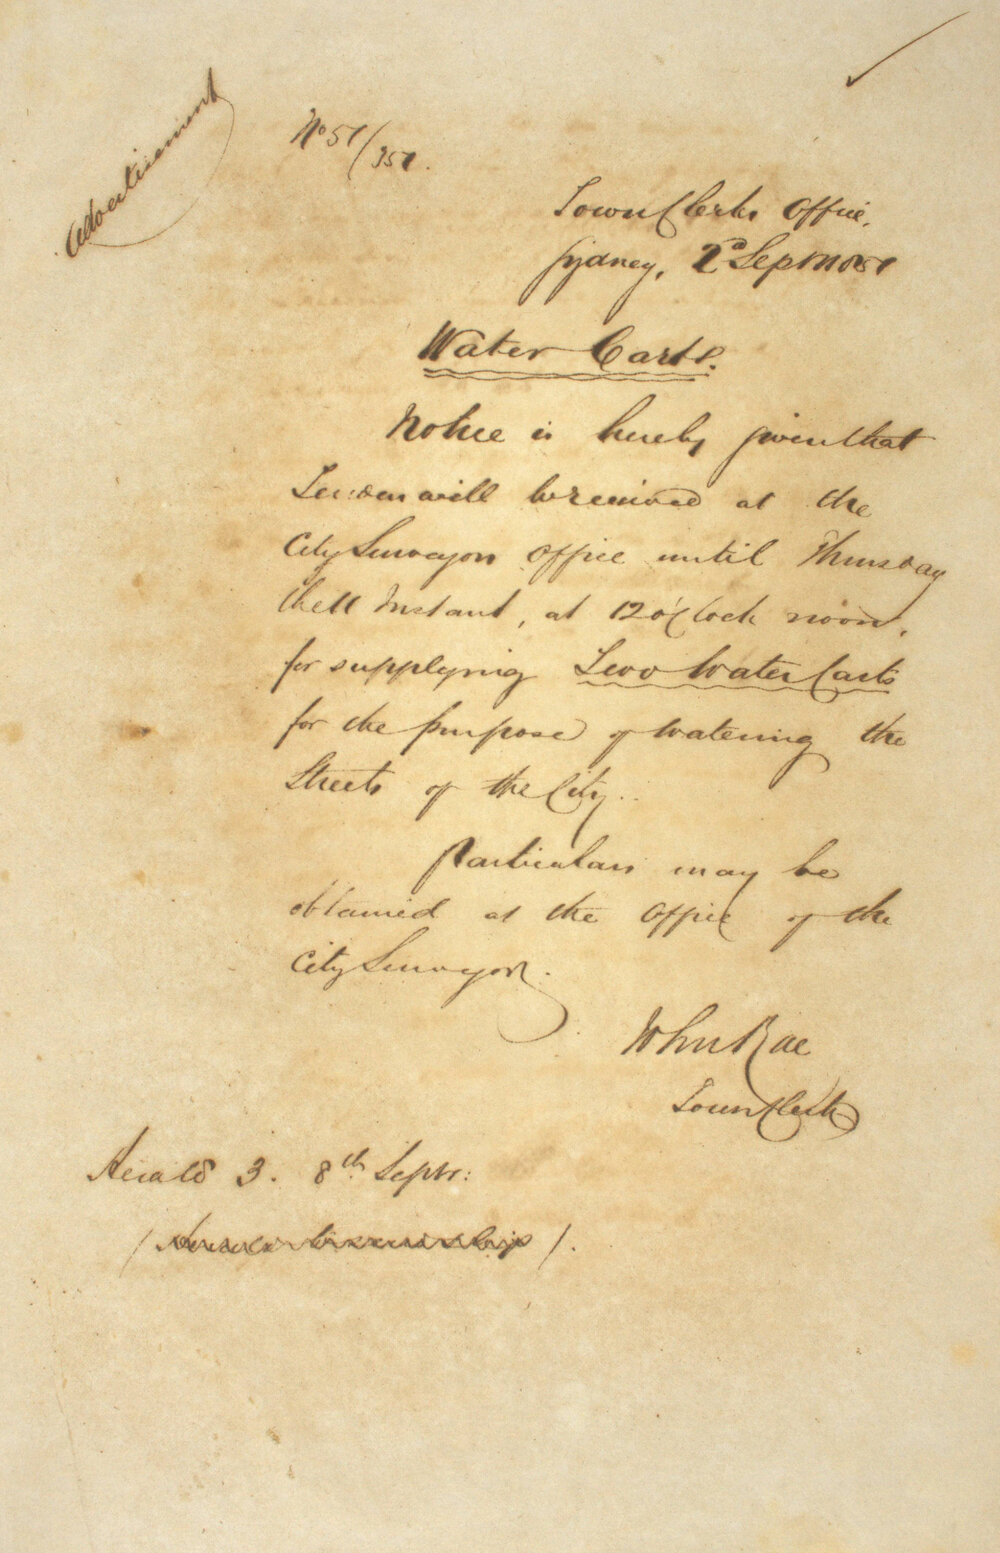 Advertisement
No 51/351.
Town Clerks Office,
Sydney, 2d Septemr 51
Water Carts.
Notice is hereby given that
Tenders will be received at the
City Surveyors Office until Thursday
the 11 Instant, at 12 o'Clock noon,
for supplying Two Water Carts
for the purpose of watering the
Streets of the City.
Particulars may be
obtained at the Office of the
City Surveyor.
John Rae
Town Clerk
Herald 3. 8th Septr: